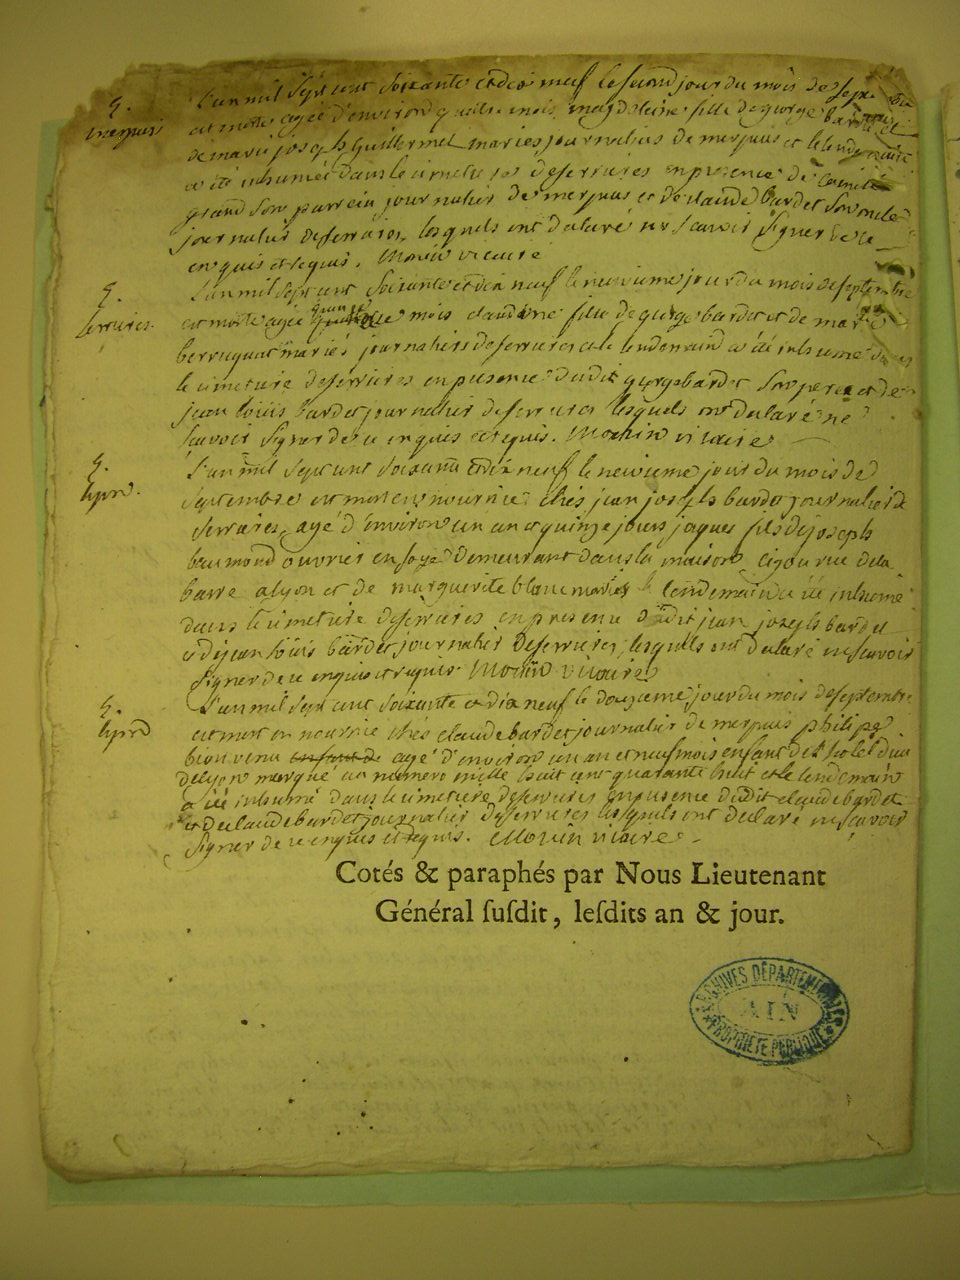 S.
merpuis
L'an mil sept cent soixante et dix neuf le second jour du mois de septembre
est morte agée d'environ quatre mois magdeleine fille de george bardet et
de marie joseph Guillermet mariés journaliers de merpuis et le lendemain
a été inhumée dans le cimetiere de serrieres en presence de
grand son parrein journalier de merpuis et de claude bardet son oncle
journalier de serrieres, lesquels ont declaré ne scavoir signer de ce
enquis et requis. Morin vicaire
S.
serrieres
L'an mil sept cent soixante et dix neuf le neuvieme jour du mois de septembre
est morte agée mois claudine fille de george bardet et de marie
berruquat mariés journaliers de serrieres et le lendemain a été inhumé dans
le cimetiere de serrieres en presence dudit george bardet son pere et de
jean louis bardet journalier de serrieres lesquels ont declaré ne
scavoir signer de ce enquis et requis. Morin vicaire
S.
lyon.
L'an mil sept cent soixante et dix neuf le neuvieme jour du mois de
septembre est mort en nourrice chés jean joseph bardet journalier de
serrieres, agé d'environ un an et quinze jours jaques fils de joseph
beaumond ouvrier en soye demeurant dans la maison rue de la
barre a lyon et de marguerite blanc mariés le lendemain a été inhumé
dans le cimetiere de serrieres en presence dudit jean joseph bardet
et de jean louis bardet journalier de serrieres, lesquels ont declaré ne scavoir
signer de ce enquis et requis. Morin vicaire
S.
lyon
L'an mil sept cent soixante et dix neuf le douzieme jour du mois de septembre
est mort en nourrice chés claude bardet journalier de merpuis philipe
bien venu enfant de agé d'environ un an et neuf mois enfant de l'hotel dieu
de lyon marqué au numero mille huit cent quarante huit et le lendemain
a été inhumé dans le cimetiere de serrieres en presence dudit claude bardet
et de claude bardet journalier de serrieres lesquels ont declaré ne scavoir
signer de ce enquis et requis. Morin vicaire
Cotés & paraphés par Nous Lieutenant
Général ſuſdit, leſdits an & jour.
ARCHIVES DÉPARTEMENTALES
AIN
PROPRIETE PUBLIQUE